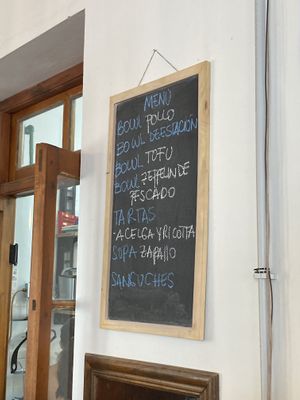 MENÚ
BOWL POLLO
BOWL DE ESTACIÓN
BOWL TOFU
BOWL ZEPPELIN DE
PESCADO
TARTAS
-ACELGA Y RICOTTA
SOPA ZAPALLO
SANGUCHES